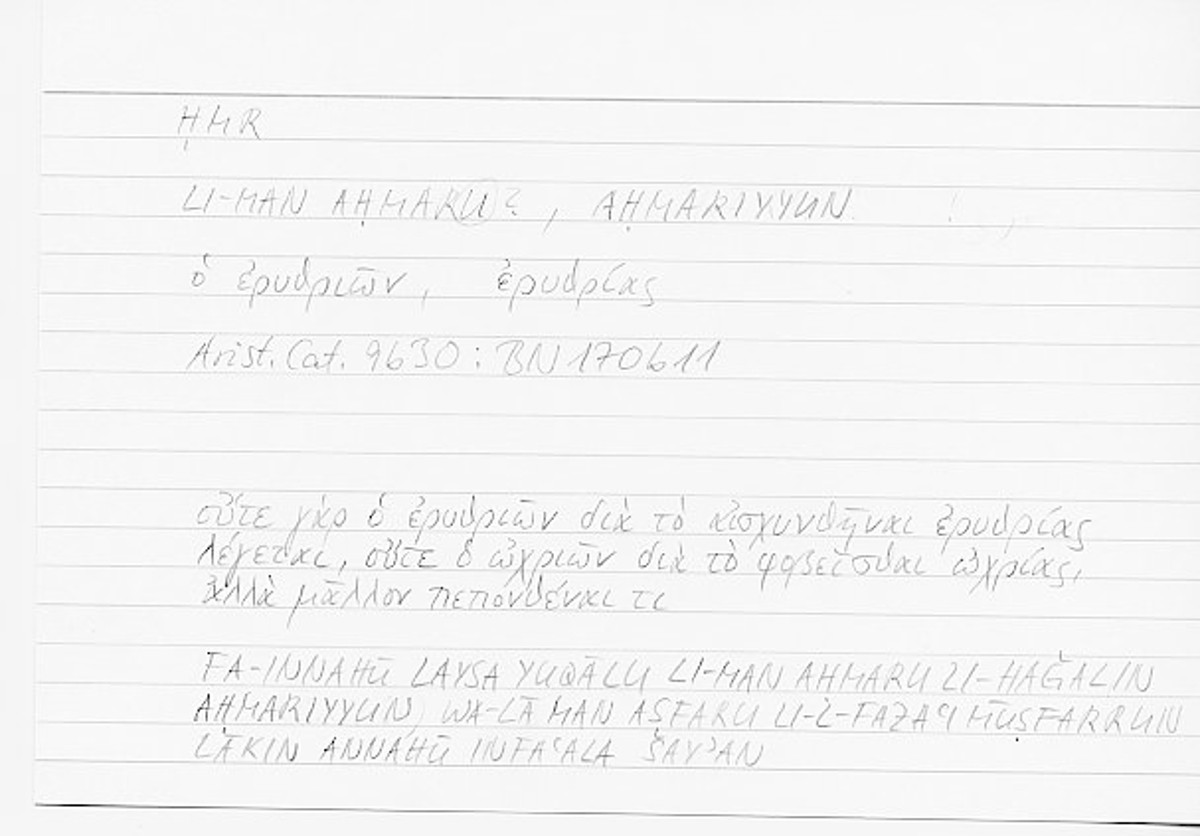 ḤMR
LI-MAN AḤMARU? , AḤMARIYYUN
ὁ ἐρυθριῶν, ἐρυθρίας
Arist. Cat. 9b30 : BN 170b11
οὔτε γὰρ ὁ ἐρυθριῶν διὰ τὸ αἰσχυνθῆναι ἐρυθρίας
λέγεται, οὔτε ὁ ὠχριῶν διὰ τὸ φοβεῖσθαι ὠχρίας,
ἀλλὰ μᾶλλον πεπονθέναι τι
FA-INNAHŪ LAYSA YUQĀLU LI-MAN AḤMARU LI-ḤAǦALIN
AḤMARIYYUN, WA-LĀ MAN AṢFARU LI-L-FAZAʿI MUṢFARRUN
LĀKIN ANNAHŪ INFAʿALA ŠAYʾAN